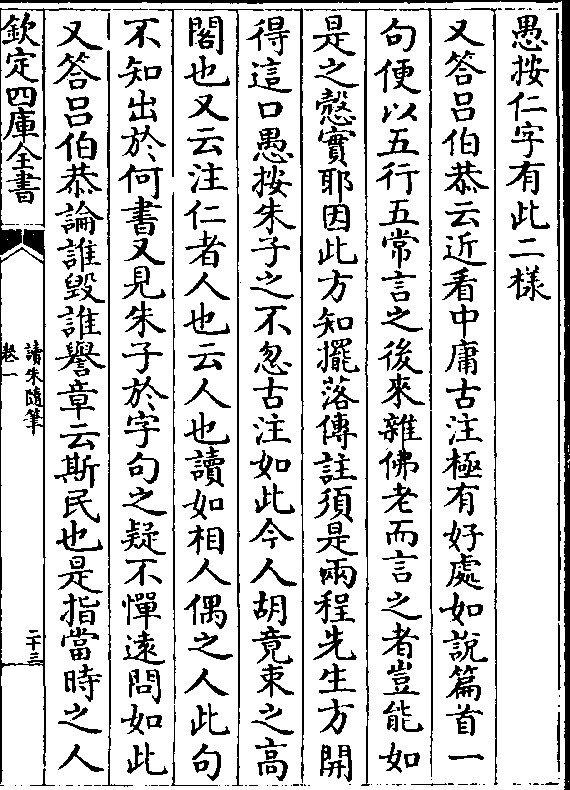 愚按仁字有此二様
又答吕伯恭云近看中庸古注極有好處如說篇首一
句便以五行五常言之後來雜佛老而言之者豈能如
是之慤實耶因此方知擺落傳註須是兩程先生方開
得這口愚按朱子之不忽古注如此今人胡竟束之高
閣也又云注仁者人也云人也讀如相人偶之人此句
不知出於何書又見朱子於字句之疑不憚遠問如此
又答吕伯恭論誰毀誰譽章云斯民也是指當時之人
欽定四庫全書
讀朱隨筆
卷一
二十三